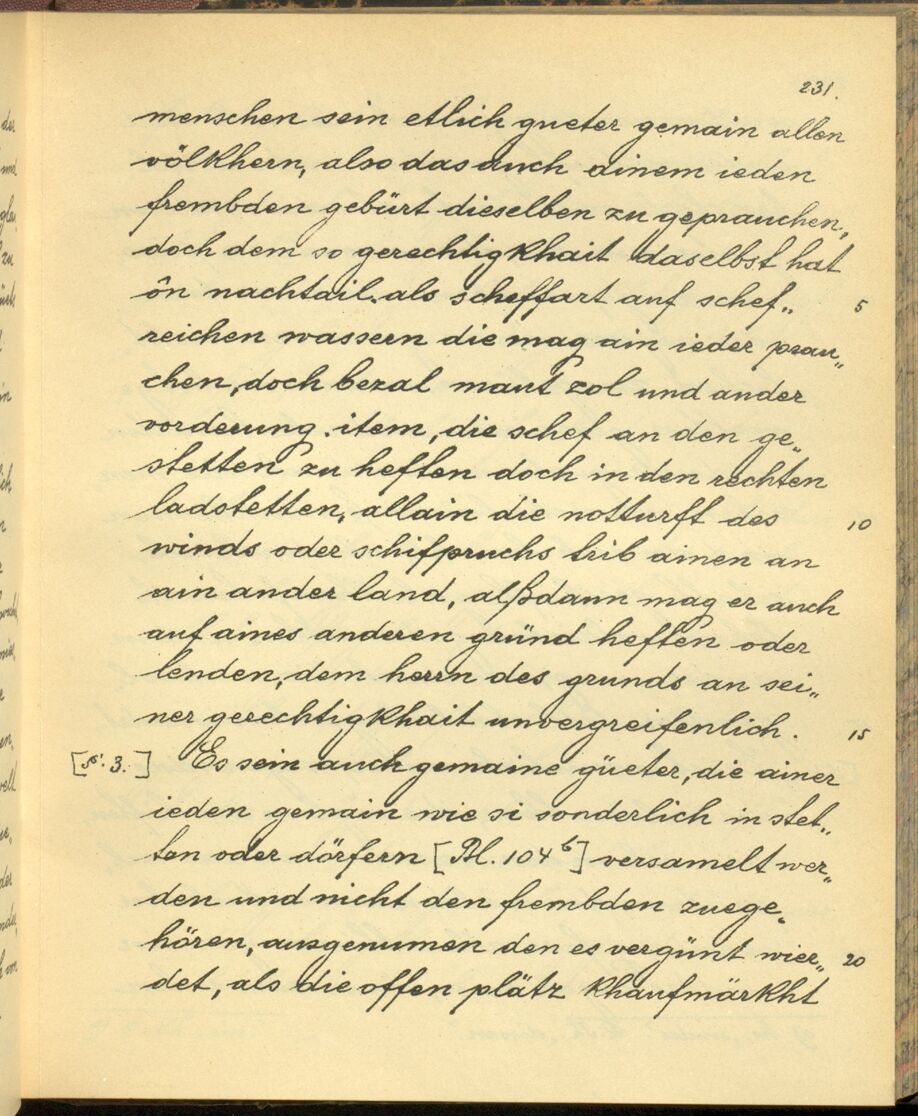 231.
menschen sein etlich gueter gemain allen
völkhern, also das auch ainem ieden
frembden gebürt dieselben zu geprauchen,
doch dem so gerechtigkhait daselbst hat
ôn nachtail. als scheffart auf schef„ 5
reichen wassern die mag ain ieder prau„
chen, doch bezal maut zol und ander
vorderung. item, die schef an den ge„
stetten zu heften doch in den rechten
ladstetten, allain die notturft des 10
winds oder schifpruchs trib ainen an
ain ander land, alßdann mag er auch
auf aines anderen gründ heften oder
lenden, dem herrn des grunds an sei„
ner gerechtigkhait unvergreifenlich. 15
[§. 3.] Es sein auch gemaine güeter, die ainer
ieden gemain wie si sonderlich in stet„
ten oder dörfern [Bl. 104b] versamelt wer„
den und nicht den frembden zuege„
hören, ausgenumen den es vergünt wier„ 20
det, als die offen plätz khaufmärkht